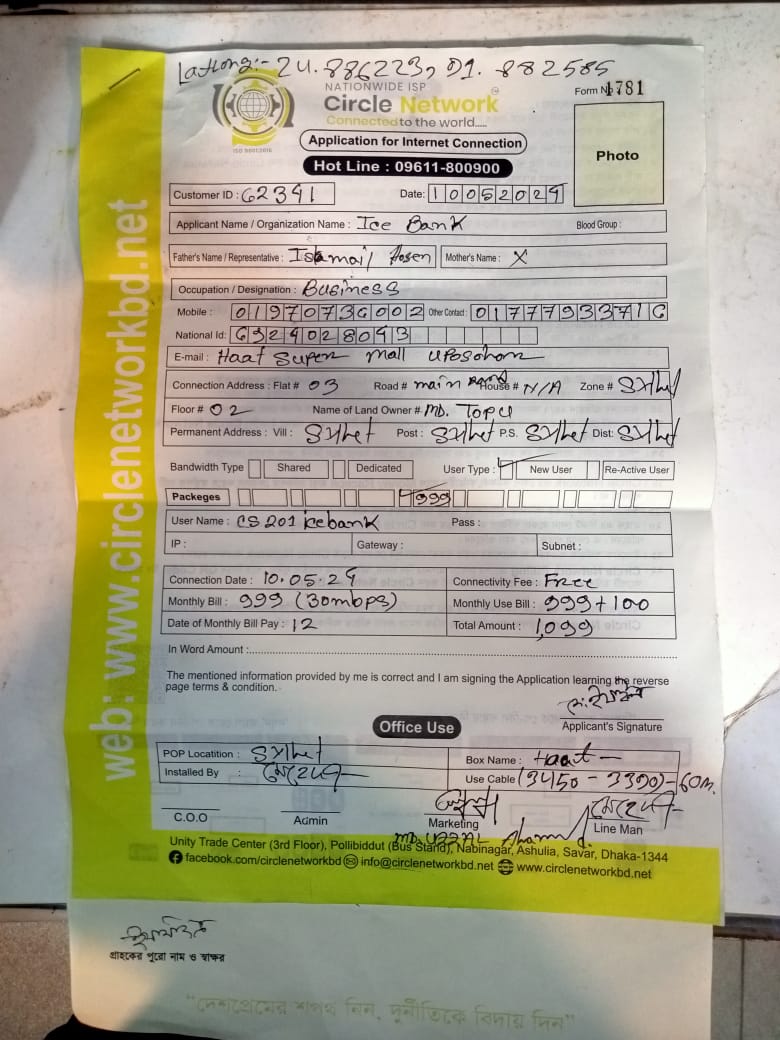 Lattong:- 24.886223, 91.882585
NATIONWIDE ISP
Circle Network
Connected to the world.....
ISO 9001:2015
Form № 1781
Application for Internet Connection
Hot Line : 09611-800900
Photo
Customer ID : 62391
Date: 10052024
Applicant Name / Organization Name : Ice Bank
Blood Group :
Father's Name / Representative : Ismail Hosen
Mother's Name : X
Occupation / Designation : Business
Mobile : 01970736002
Other Contact : 01777933716
National Id: 6924028093
E-mail : Haat Super mall Uposohor
Connection Address : Flat # 03 Road # main Road House # N/A Zone # Sylhet
Floor # 02 Name of Land Owner # MD. Topu
Permanent Address : Vill : Sylhet Post : Sylhet P.S. Sylhet Dist: Sylhet
Bandwidth Type Shared Dedicated User Type : New User Re-Active User
Packeges 999
User Name : CS201icebank Pass :
IP : Gateway : Subnet :
Connection Date : 10.05.24 Connectivity Fee : Free
Monthly Bill : 999 (30mbps) Monthly Use Bill : 999+100
Date of Monthly Bill Pay : 12 Total Amount : 1,099
In Word Amount :
The mentioned information provided by me is correct and I am signing the Application learning the reverse
page terms & condition.
Applicant's Signature
Office Use
POP Locatition : Sylhet Box Name : Haat
Installed By : মেহেদী Use Cable (3450 - 3390)-60m.
C.O.O Admin Marketing মেহেদী Line Man
MD. UZZAL Ahamed.
Unity Trade Center (3rd Floor), Pollibiddut (Bus Stand), Nabinagar, Ashulia, Savar, Dhaka-1344
facebook.com/circlenetworkbd info@circlenetworkbd.net www.circlenetworkbd.net
web: www.circlenetworkbd.net
গ্রাহকের পুরো নাম ও স্বাক্ষর
"দেশপ্রেমের শপথ নিন, দুর্নীতিকে বিদায় দিন"